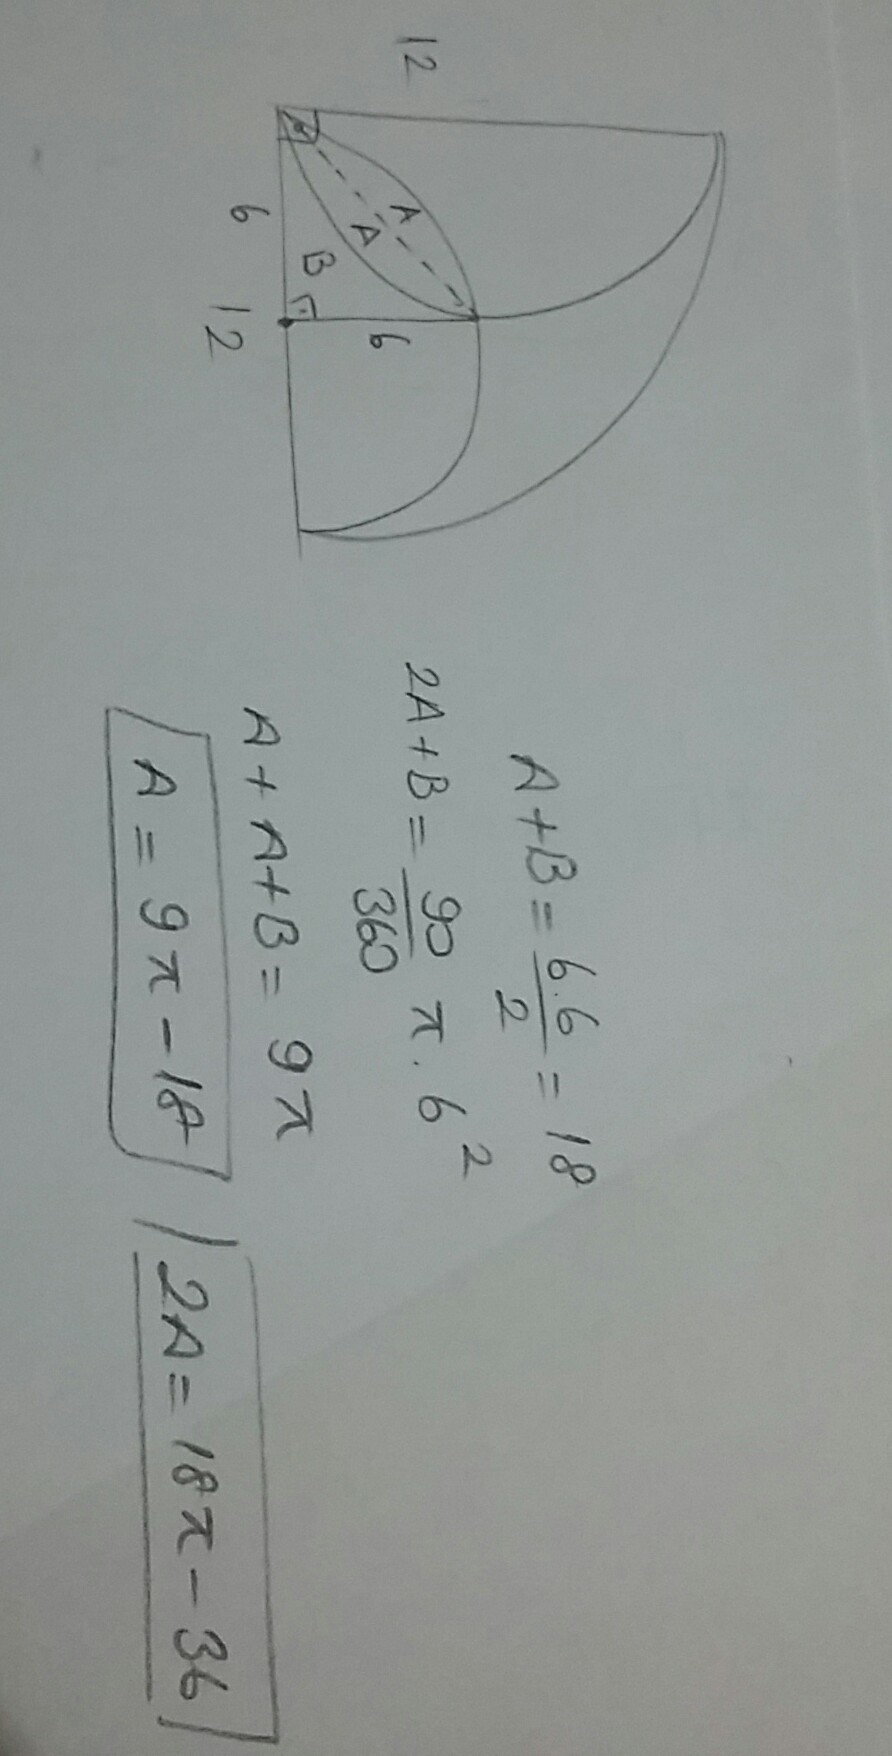 12
A
A
6
B
6
12
A+B = \frac{6.6}{2} = 18
2A+B = \frac{90}{360} π.6²
A+A+B = 9π
A = 9π-18
2A = 18π-36